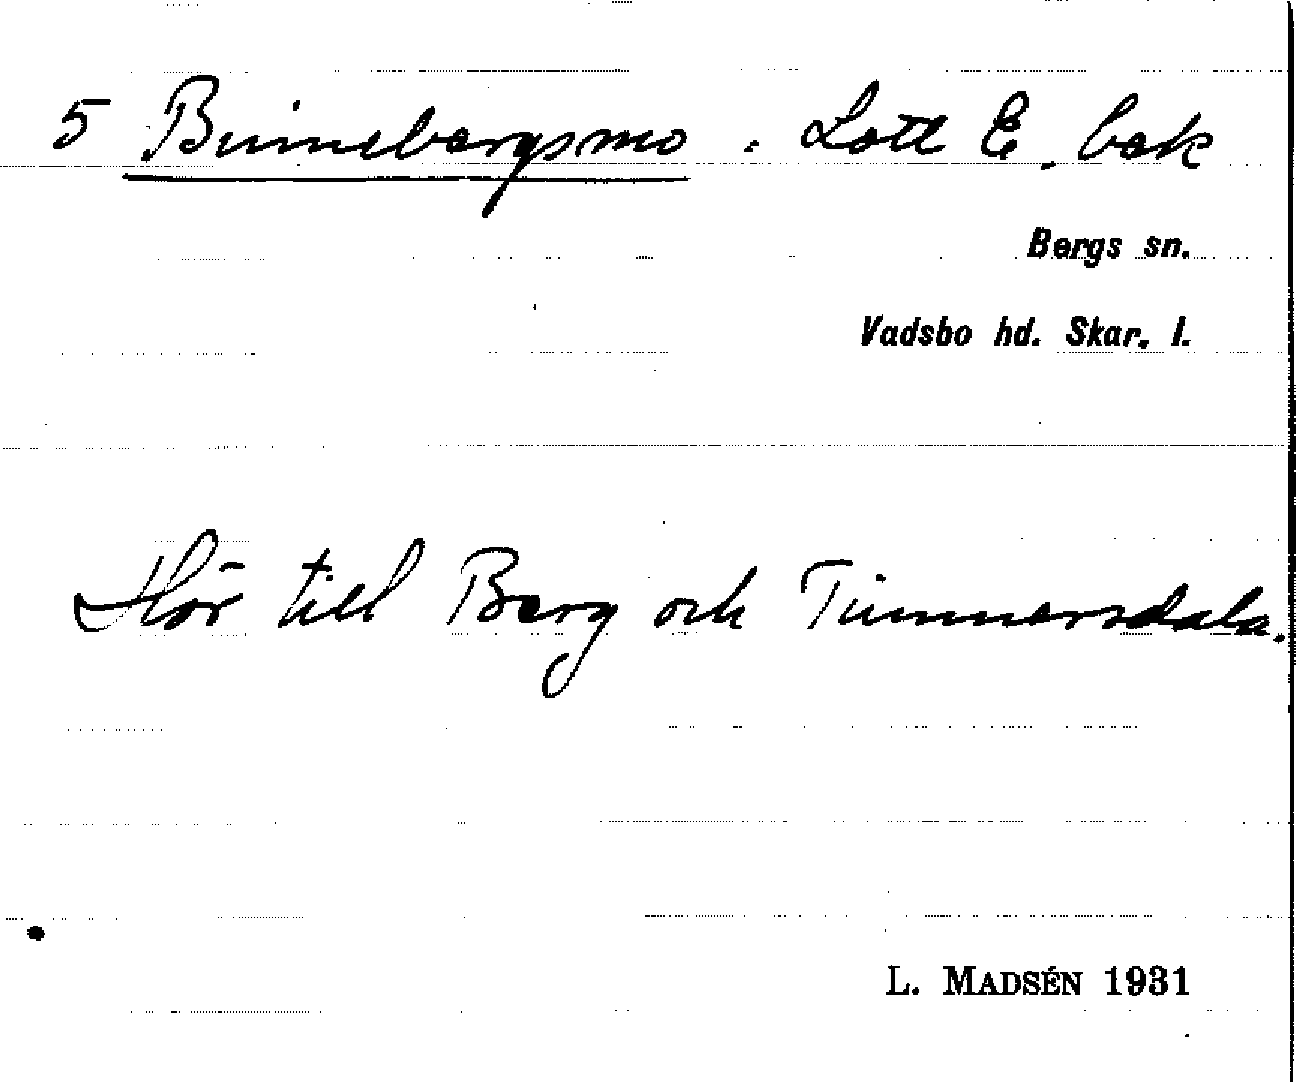 5 Binnebergsmo. Lott E. bek
Bergs sn.
Vadsbo hd. Skar. l.
Hör till Berg och Timmersdala.
L. MADSÉN 1931